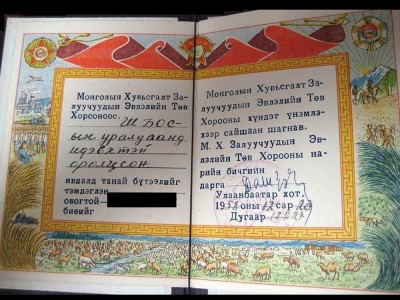 Монголын Хувьсгалт За-
луучуудын Эвлэлийн Төв
Хорооноос:
ШБОС-
ын уралдаанд
идэвхтэй
оролцсон
явдалд танай бүтээлийг
тэмдэглэн
овогтой
биеийг
Монголын Хувьсгалт За-
луучуудын Эвлэлийн Төв
Хорооны күндэт үнэмлэ-
хээр сайшаан шагнав.
М. Х. Залуучуудын Эв-
лэлийн Төв Хорооны на-
рийн бичгийн
дарга
Улаанбаатар хот.
оны сар
Дугаар